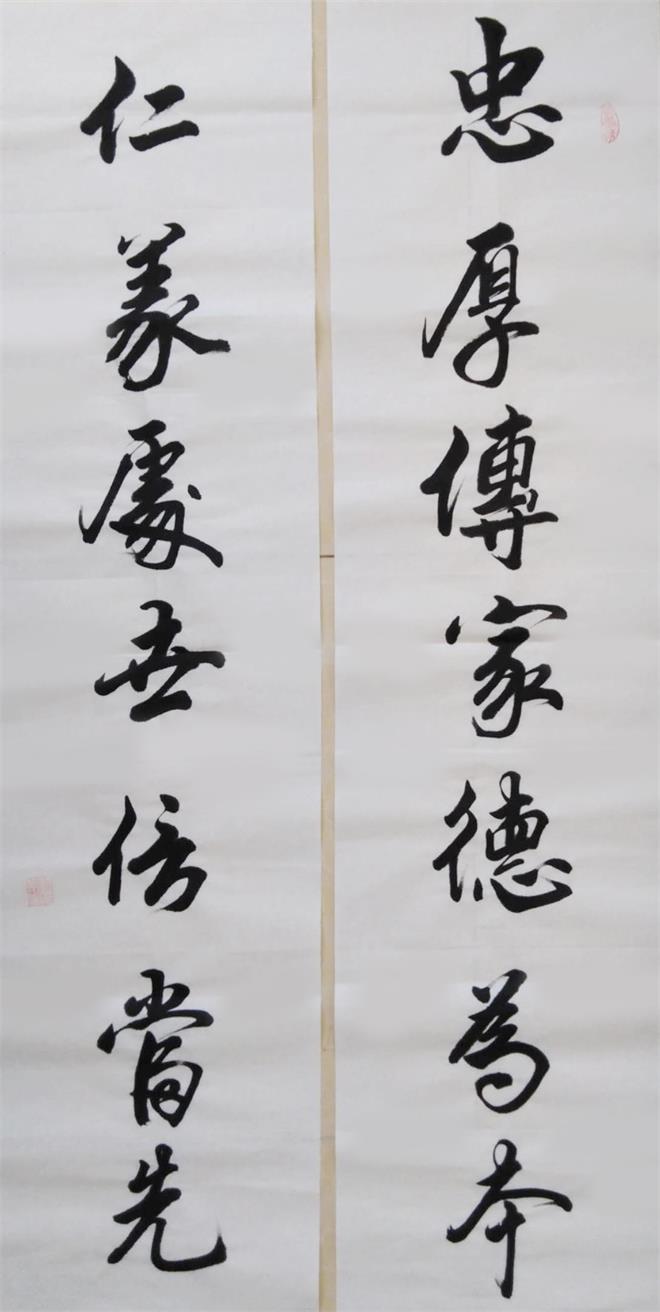 忠厚傳家德為本
仁義處世信當先